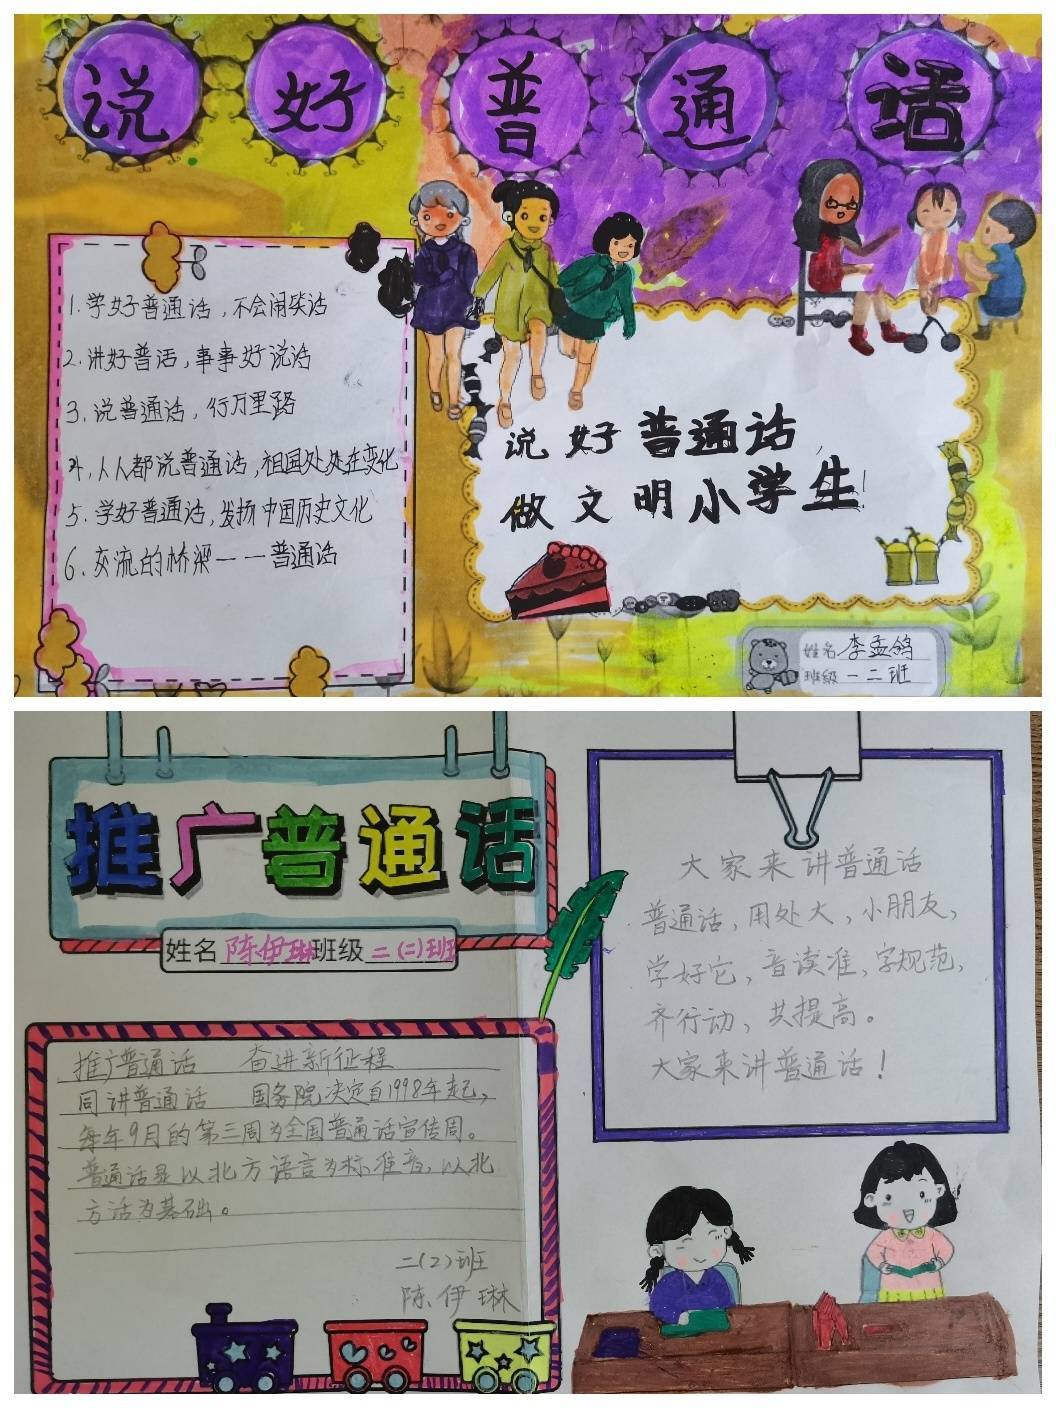 说好普通话
1.学好普通话,不会闹笑话
2.讲好普话,事事好说话
3.说普通话,行万里路
4.人人都说普通话,祖国处处在变化
5.学好普通话,发扬中国历史文化
6.交流的桥梁——普通话
说好普通话,
做文明小学生!
姓名 李孟鸽
班级 一二班
推广普通话
姓名 陈伊琳 班级 二(二)班
推广普通话 奋进新征程
同讲普通话 国务院决定自1998年起,
每年9月的第三周为全国普通话宣传周。
普通话是以北方语言为标准音,以北
方话为基础。
二(2)班
陈伊琳
大家来讲普通话
普通话,用处大,小朋友,
学好它,音读准,字规范,
齐行动,共提高。
大家来讲普通话!